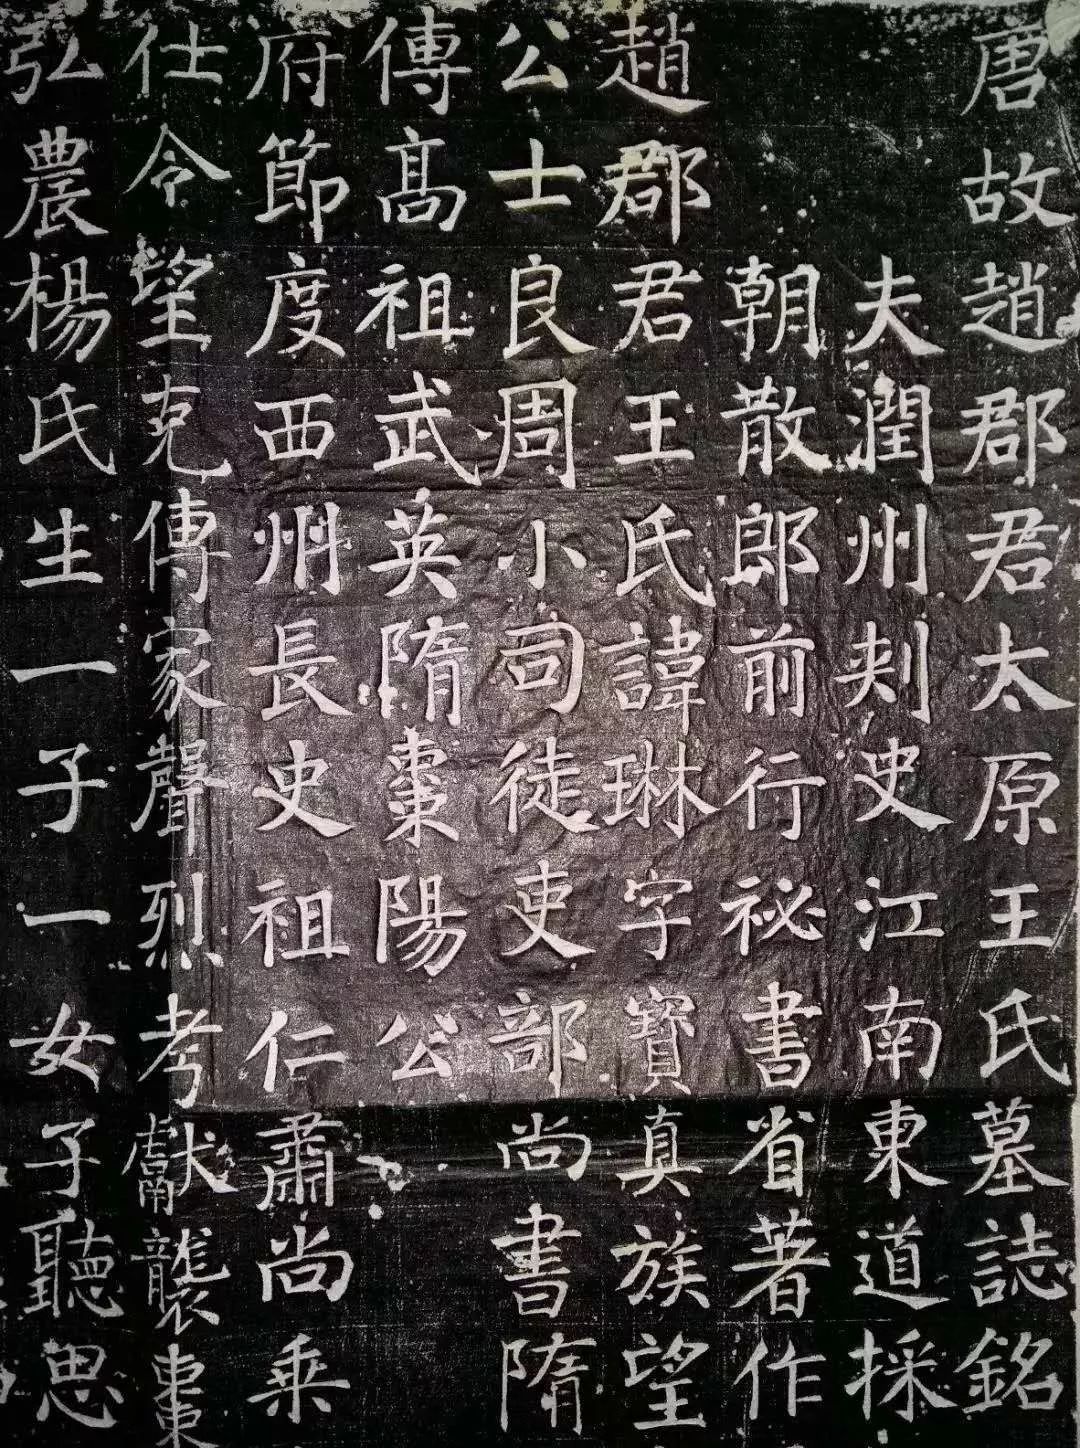 唐故趙郡君太原王氏墓誌銘
夫潤州刾史江南東道採
朝散郎前行祕書省著作
趙郡君王氏諱琳字寶真族望
公士良周小司徒吏部尚書隋
傳髙祖武英隋棗陽公
府節度西州長史祖仁肅尚乘
仕令望克傳家聲烈考獻襲棗
弘農楊氏生一子一女子聽思